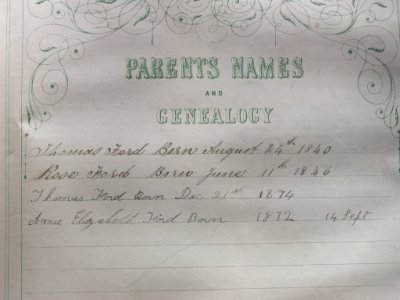 PARENTS NAMES
AND
GENEALOGY
Thomas Ford Born August 24th 1840
Rose Ford Born June 11th 1846
Thomas Ford Born Dec 21st 1874
Annie Elizabeth Ford Born 1872 14 Sept